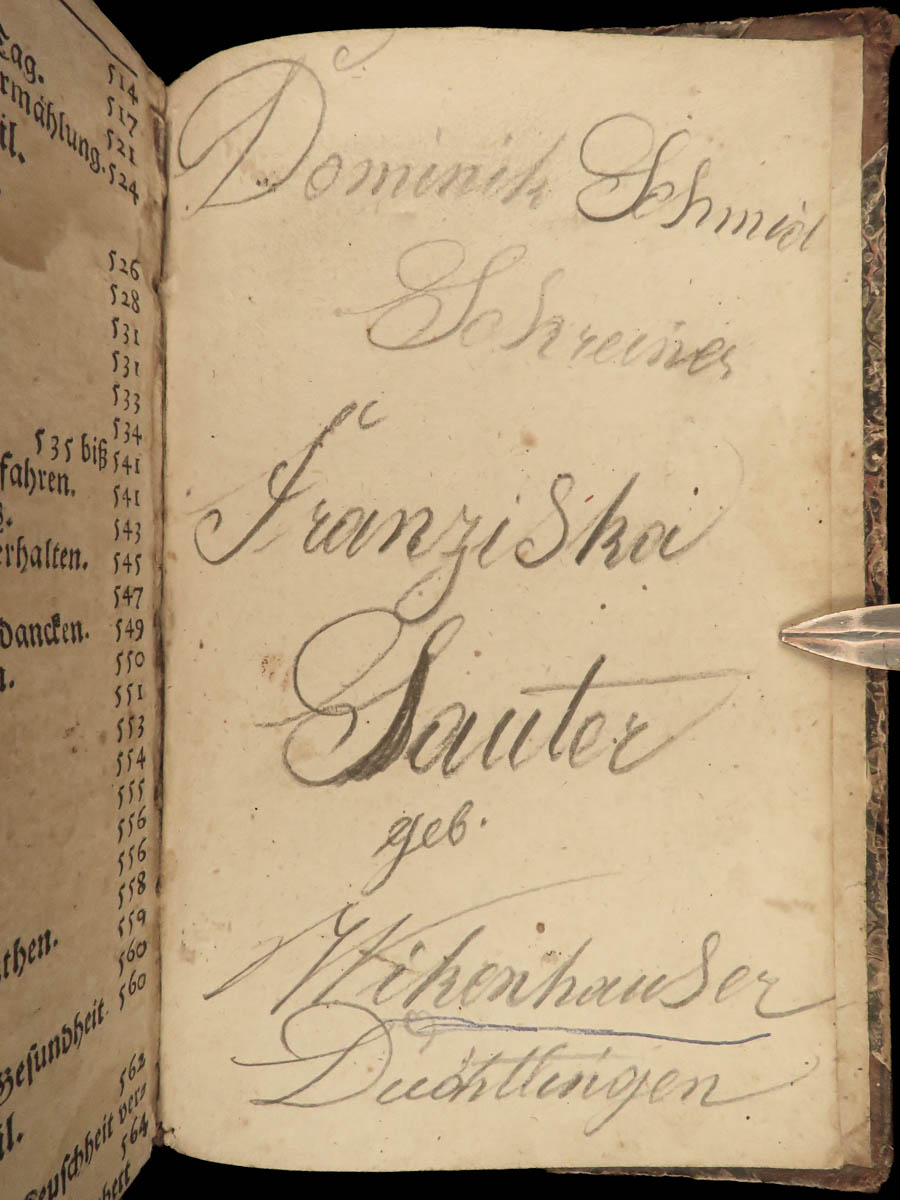 Tag.
514
517
rmählung.
521
il.
524
526
528
531
531
533
534
535 biß 541
fahren.
541
543
erhalten.
545
547
dancken.
549
550
551
553
554
555
556
556
558
559
then.
560
560
Gesundheit.
562
il.
564
Dominik Schmid
Schreiner
Franziska
Sauter
geb.
Wikenhauser
Duchtlingen